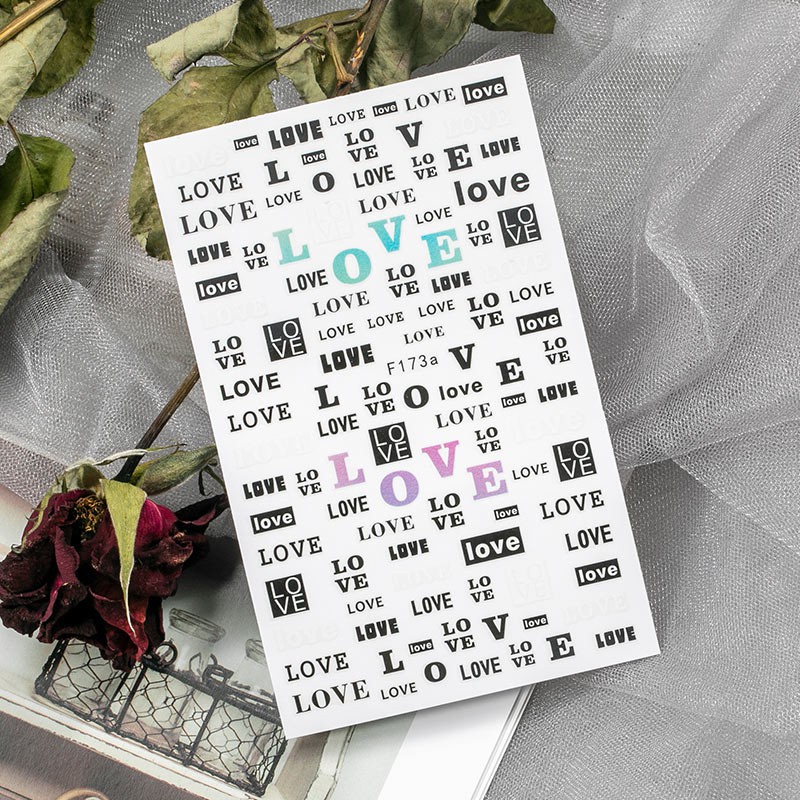 love LOVE LOVE love LOVE love
love LOVE
LOVE LOVE love LO
VE LOVE LO
VE LOVE
LOVE LOVE LOVE LOVE love
LOVE LO
VE LOVE LOVE LO
VE LO
VE
love LOVE LO
VE LOVE LOVE
LOVE LOVE LO
VE LOVE
LO
VE LO
VE LOVE LOVE LOVE love
LOVE LOVE F173a LO
VE
LOVE LO
VE LOVE love LOVE
LOVE LO
VE LOVE love
LOVE LO
VE LOVE LO
VE LOVE LO
VE
love LOVE LO
VE love LOVE
LOVE LOVE LOVE love LOVE
LO
VE LO
VE LOVE LOVE LO
VE love
love LOVE LO
VE love LOVE
LOVE love LOVE LO
VE LOVE
LOVE LOVE LOVE